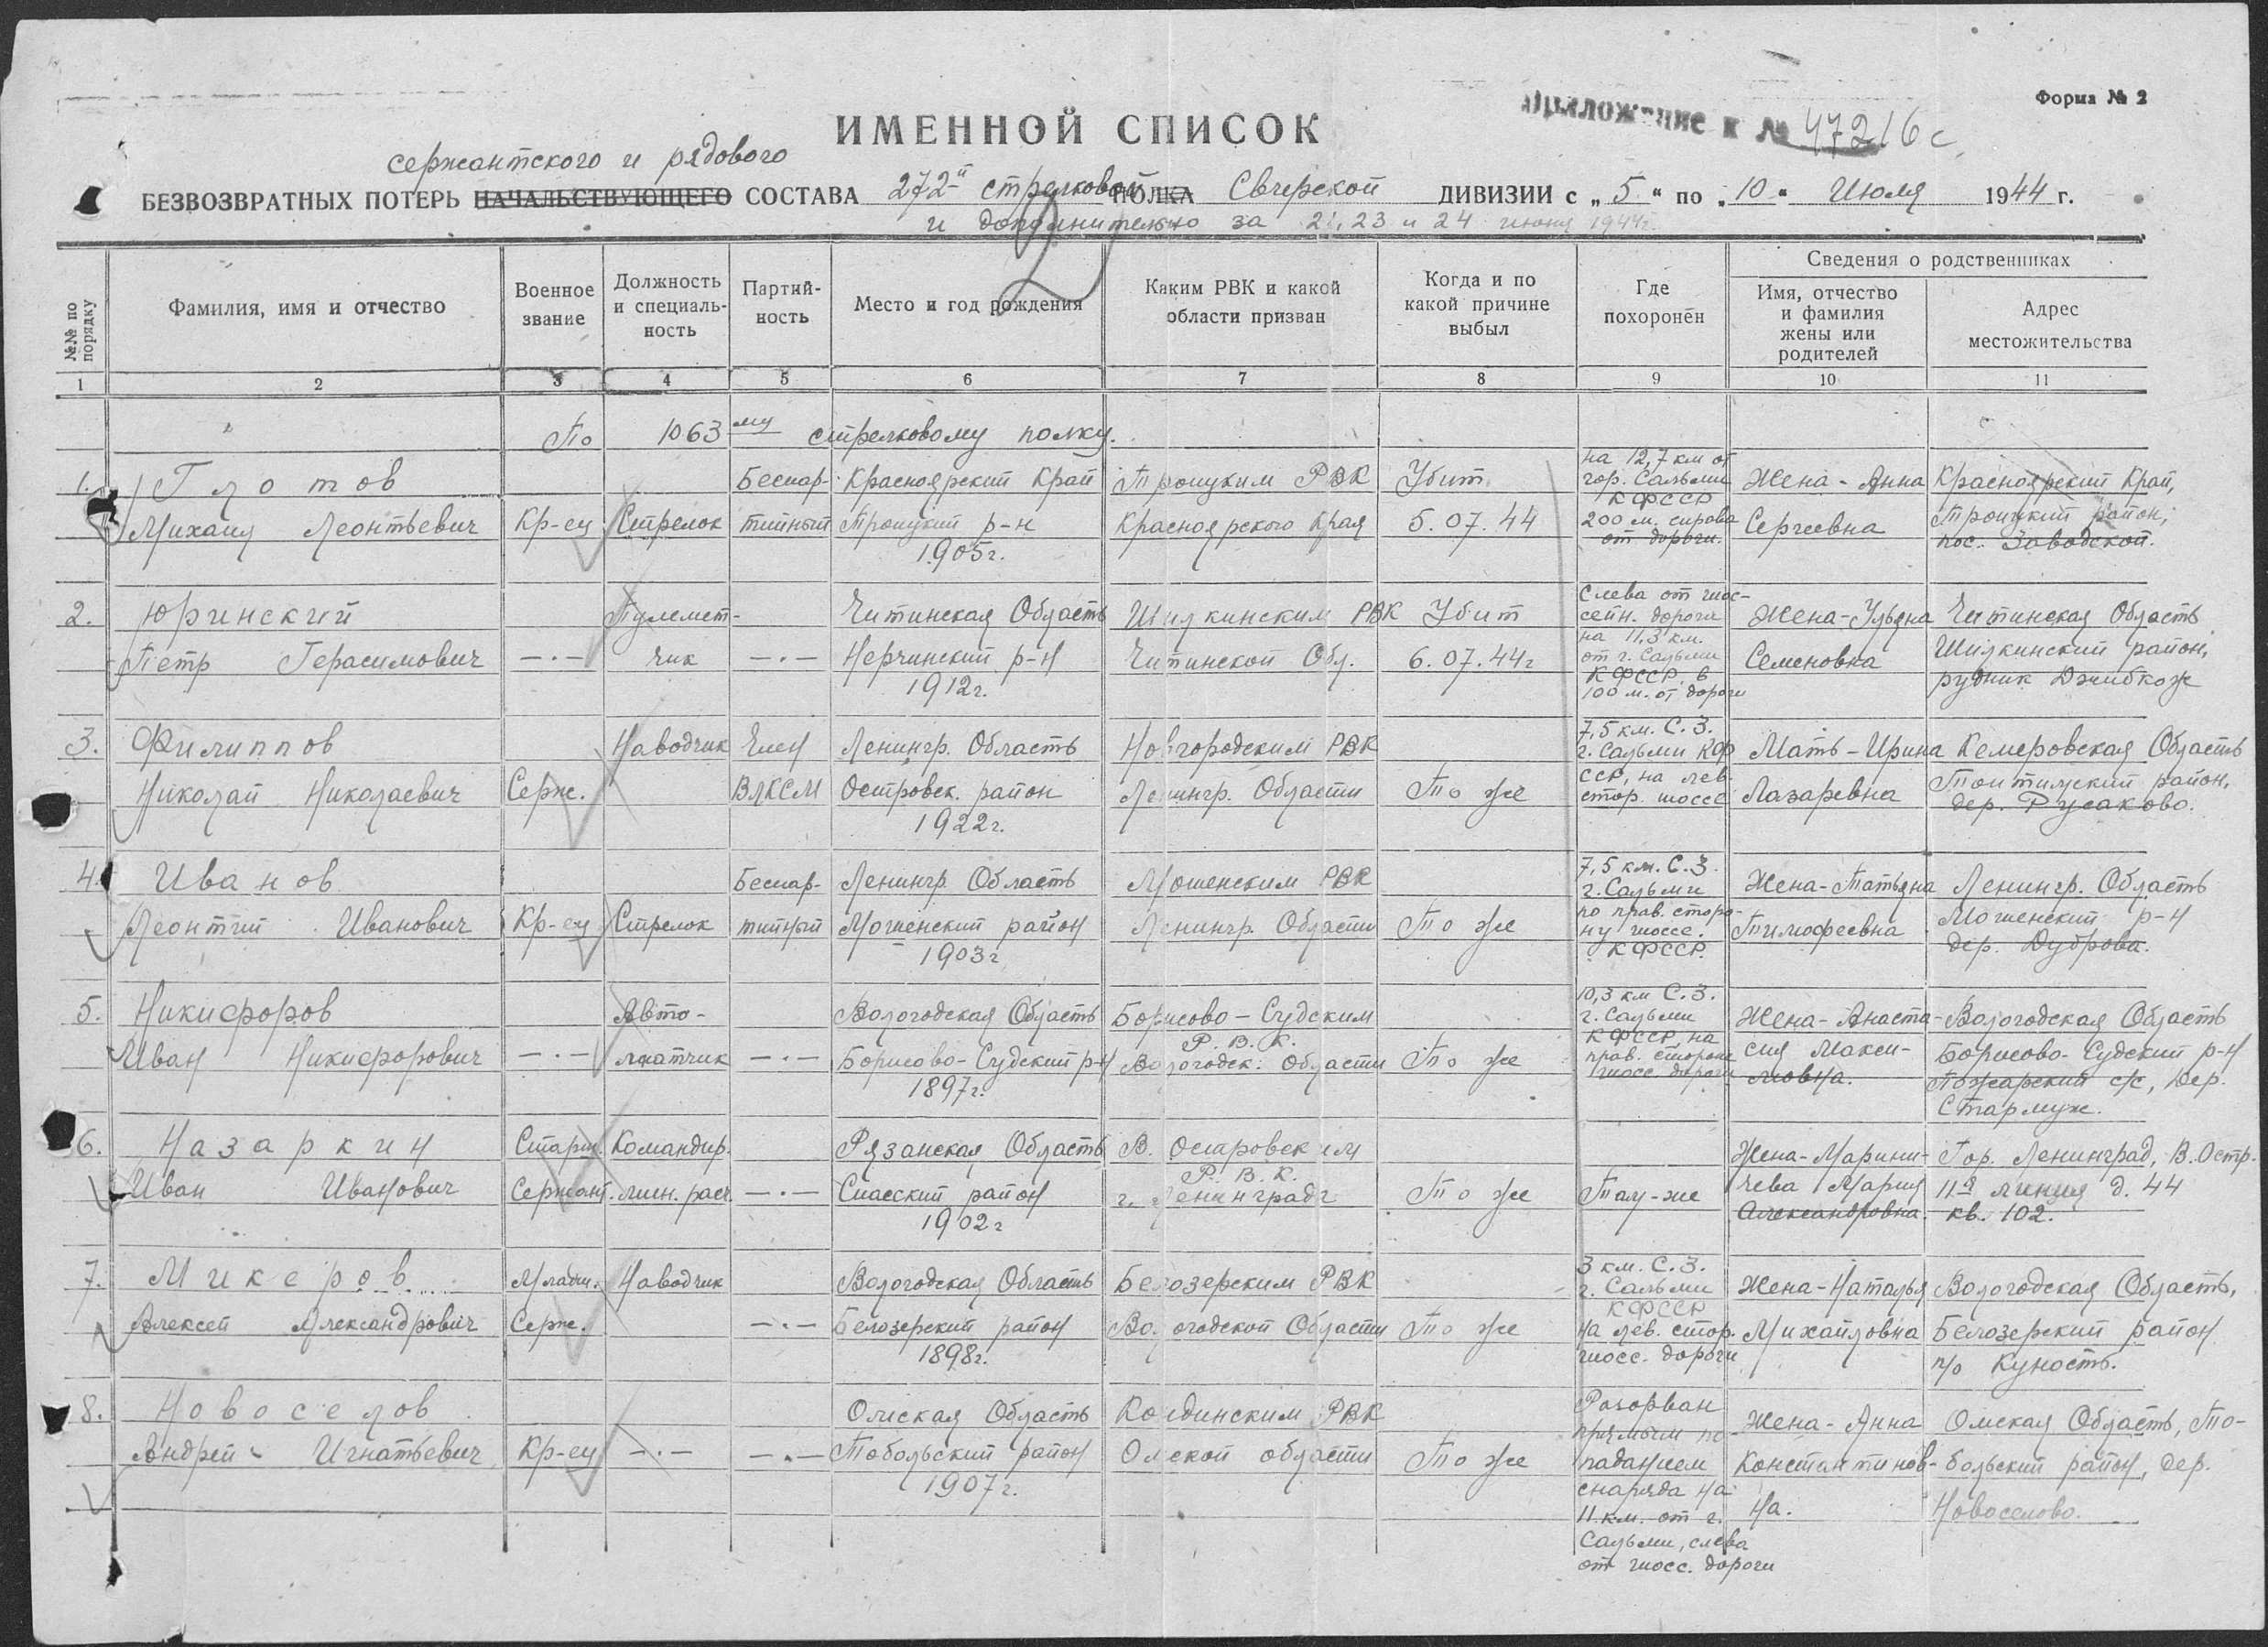 Форма № 2
Приложение к № 47216с
ИМЕННОЙ СПИСОК
сержантского и рядового
БЕЗВОЗВРАТНЫХ ПОТЕРЬ НАЧАЛЬСТВУЮЩЕГО СОСТАВА 272-й стрелковой ПОЛКА Свирской ДИВИЗИИ с „ 5 “ по „ 10 “ Июля 1944 г.
и дополнительно за 21, 23 и 24 июня 1944г.
№№ по порядку
Фамилия, имя и отчество
Военное звание
Должность и специальность
Партийность
Место и год рождения
Каким РВК и какой области призван
Когда и по какой причине выбыл
Где похоронён
Сведения о родственниках
Имя, отчество и фамилия жены или родителей
Адрес местожительства
1 2 3 4 5 6 7 8 9 10 11
По 1063 му стрелковому полку.
1. Глотов Михаил Леонтьевич
Кр-ец
Стрелок
Беспартийный
Красноярский Край
Троицкий р-н
1905г.
Троицким РВК
Красноярского Края
Убит
5.07.44
на 12,7 км от
гор. Сальми
КФССР
200 м. справа
от дороги.
Жена - Анна
Сергеевна
Красноярский Край,
Троицкий район,
пос. Заводской.
2. Юринский
Петр Герасимович
— · —
Пулемет-
чик
— · —
Читинская Область
Нерчинский р-н
1912г.
Шилкинским РВК
Читинской Обл.
Убит
6.07.44г
Слева от шос-
сейн. дороги
на 11,3 км.
от г. Сальми
КФССР. в
100 м. от дороги
Жена - Ульяна
Семеновна
Читинская Область
Шилкинский район,
рудник Джибкож
3. Филиппов
Николай Николаевич
Серж.
Наводчик
Член
ВЛКСМ
Ленингр. Область
Островск. район
1922г.
Новгородским РВК
Ленингр. Области
То же
7,5 км. С.З.
г. Сальми КФ
ССР, на лев.
стор. шоссе
Мать - Ирина
Лазаревна
Кемеровская Область
район,
дер. Русаково.
4. Иванов
Леонтий Иванович
Кр-ец
Стрелок
Беспар-
тийный
Ленингр. Область
Мошенский район
1903г
Мошенским РВК
Ленингр. Области
То же
7,5 км. С.З.
г. Сальми
по прав. сторо-
ну шоссе.
КФССР.
Жена - Татьяна
Тимофеевна
Ленингр. Область
Мошенский р-н
дер. Дуброва.
5. Никифоров
Иван Никифорович
— · —
Авто-
матчик
— · —
Вологодская Область
Борисово-Судский р-н
1897г.
Борисово - Судским
Р. В. К.
Вологодск. Области
То же
10,3 км С.З.
г. Сальми
КФССР на
прав. стороне
шосс. дороги
Жена - Анаста-
сия Макси-
мовна.
Вологодская Область
Борисово-Судский р-н
Пожарский с/с, дер.
Стармуж.
6. Назаркин
Иван Иванович
Старш.
Сержант.
Командир.
мин. расч.
— · —
Рязанская Область
Спасский район
1902г
В. Островским
Р. В. К.
г. Ленинграда
То же
Там-же
Жена - Марини-
чева Мария
Александровна.
Гор. Ленинград, В. Остр.
11я линия д. 44
кв. 102.
7. Микеров
Алексей Александрович
Младш.
Серж.
Наводчик
— · —
Вологодская Область
Белозерский район
1898г.
Белозерским РВК
Вологодской Области
То же
3 км. С.З.
г. Сальми
КФССР
на лев. стор.
шосс. дороги
Жена - Наталья
Михайловна
Вологодская Область,
Белозерский район
п/о Куность.
8. Новоселов
Андрей Игнатьевич
Кр-ец
— · —
— · —
Омская Область
Тобольский район
1907г.
Кондинским РВК
Омской области
То же
Разорван
прямым по-
паданием
снаряда на
11 км. от г.
Сальми, слева
от шосс. дороги
Жена - Анна
Константинов-
на.
Омская Область, То-
больский район, дер.
Новоселово.